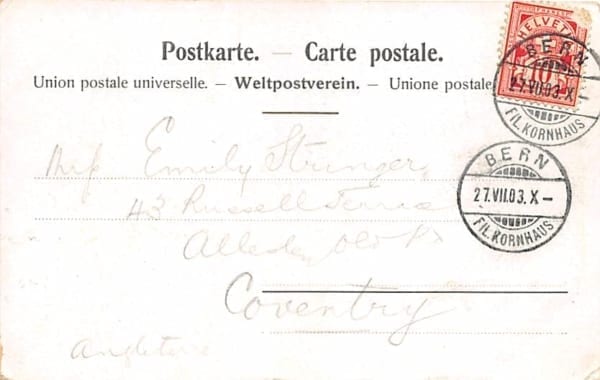 Postkarte. — Carte postale.
Union postale universelle. – Weltpostverein. – Unione postale
HELVETIA
10
BERN
27.VII.03.X–
FIL.KORNHAUS
BERN
27.VII.03.X–
FIL.KORNHAUS
Miss Emily Stringer
43 Russell Terrace
Allesley Old Rd
Coventry
Angleterre